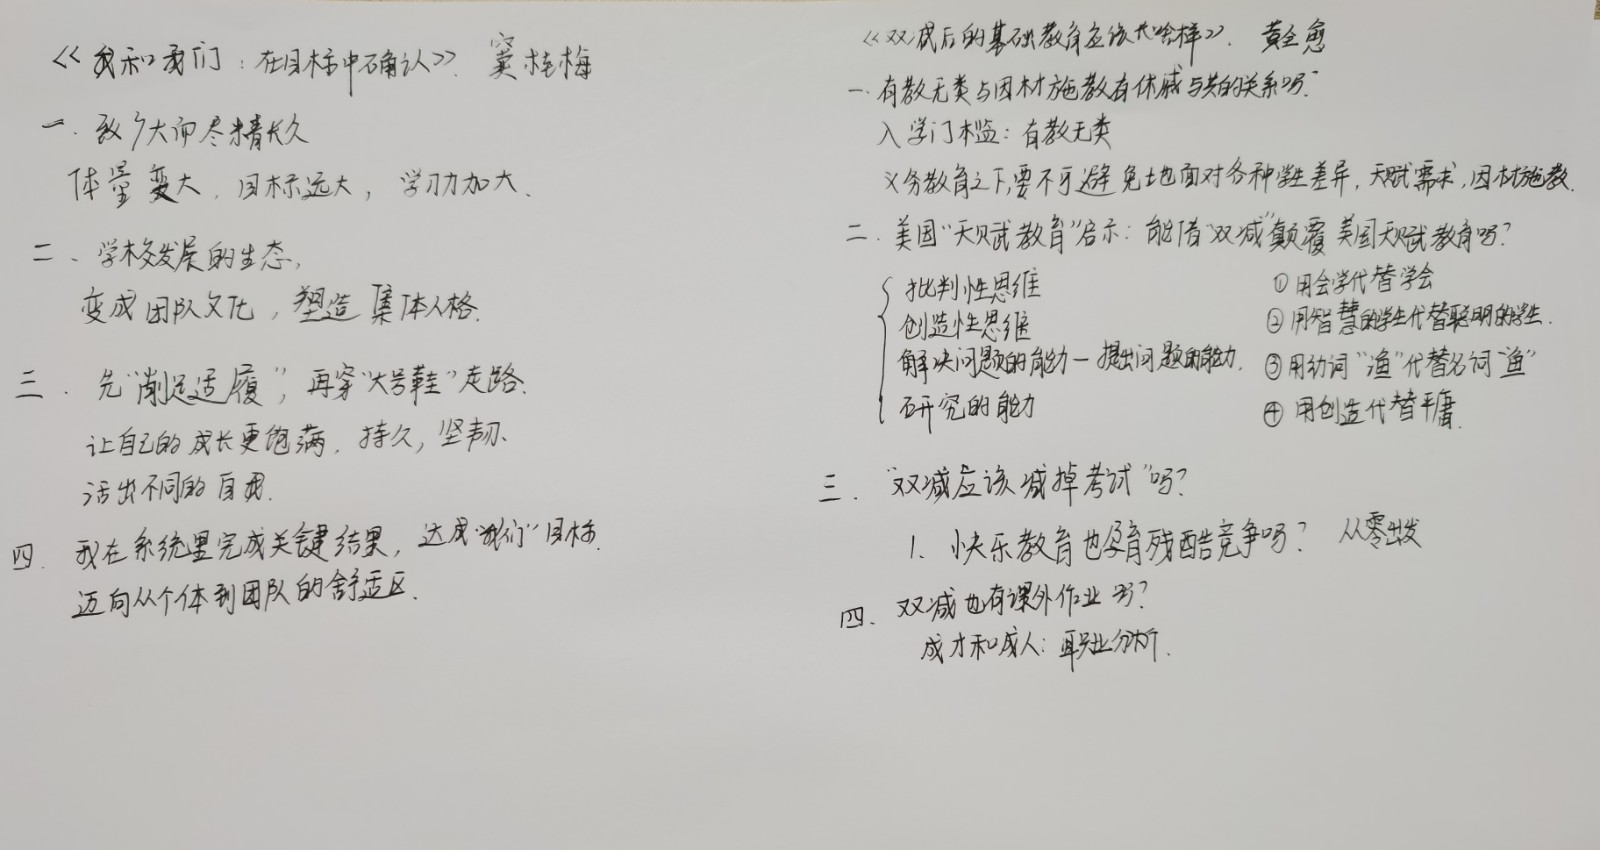 《我和我们：在目标中确认》 窦桂梅
一. 致广大而尽精长久
体量变大，目标远大，学习力加大.
二、学校发展的生态，
变成团队文化，塑造集体人格.
三. 先“削足适履”，再穿“大号鞋”走路.
让自己的成长更饱满，持久，坚韧、
活出不同的自我.
四. 我在系统里完成关键结果，达成“我们”目标.
迈向从个体到团队的舒适区.
《双减后的基础教育应该长啥样》. 黄全愈
一. 有教无类与因材施教有休戚与共的关系吗？
入学门槛：有教无类
义务教育之下，要不可避免地面对各种学生差异，天赋需求，因材施教.
二. 美国“天赋教育”启示：能借“双减”颠覆美国天赋教育吗？
批判性思维 ①用会学代替学会
创造性思维 ②用智慧的学生代替聪明的学生.
解决问题的能力—提出问题的能力. ③用动词“渔”代替名词“鱼”
研究的能力 ④用创造代替平庸.
三. “双减应该减掉考试”吗？
1. 快乐教育也孕育残酷竞争吗？ 从零出发
四. 双减也有课外作业吗？
成才和成人：职业分析.